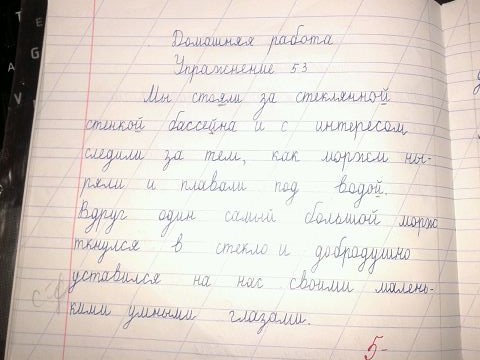 Домашняя работа
Упражнение 53
Мы стояли за стеклянной
стенкой бассейна и с интересом
следили за тем, как моржи ны-
ряли и плавали под водой.
Вдруг один самый большой морж
ткнулся в стекло и добродушно
уставился на нас своими малень-
кими умными глазами.
5-